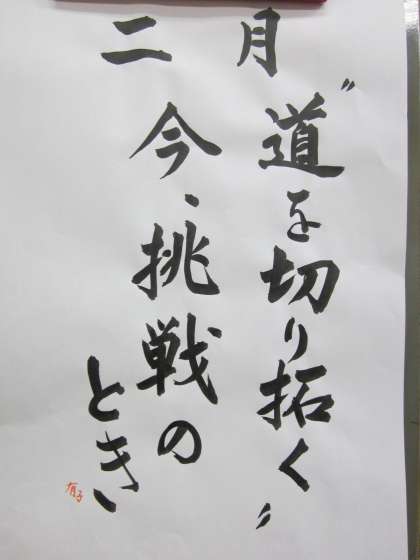 二月
〝道を切り拓く〟
今、挑戦の
とき
有子